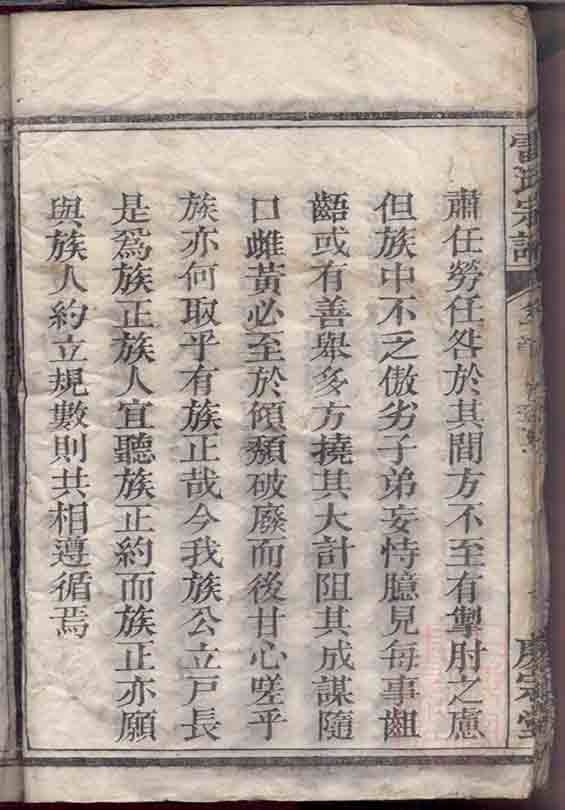 雷氏宗譜
慶宗堂
肅任勞任咎於其間方不至有掣肘之慮
但族中不乏傲劣子弟妄恃臆見每事齟
齬或有善舉多方撓其大計阻其成謀隨
口雌黃必至於傾頹破廢而後甘心嗟乎
族亦何取乎有族正哉今我族公立戶長
是爲族正族人宜聽族正約而族正亦願
與族人約立規數則共相遵循焉